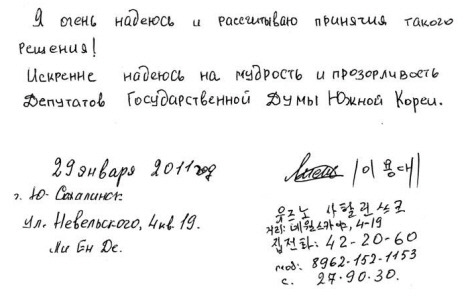 Я очень надеюсь и рассчитываю принятия такого
решения!
Искренне надеюсь на мудрость и прозорливость
Депутатов Государственной Думы Южной Кореи.
29 января 2011 год
/이용대/
г. Ю-Сахалинск
ул. Невельского, 4 кв. 19.
Ли Ен Де.
유즈노 사할린쓰크
거리: 네웰스카야, 4-19
집전화: 42-20-60
моб: 8962-152-1153
с. 27-90-30.